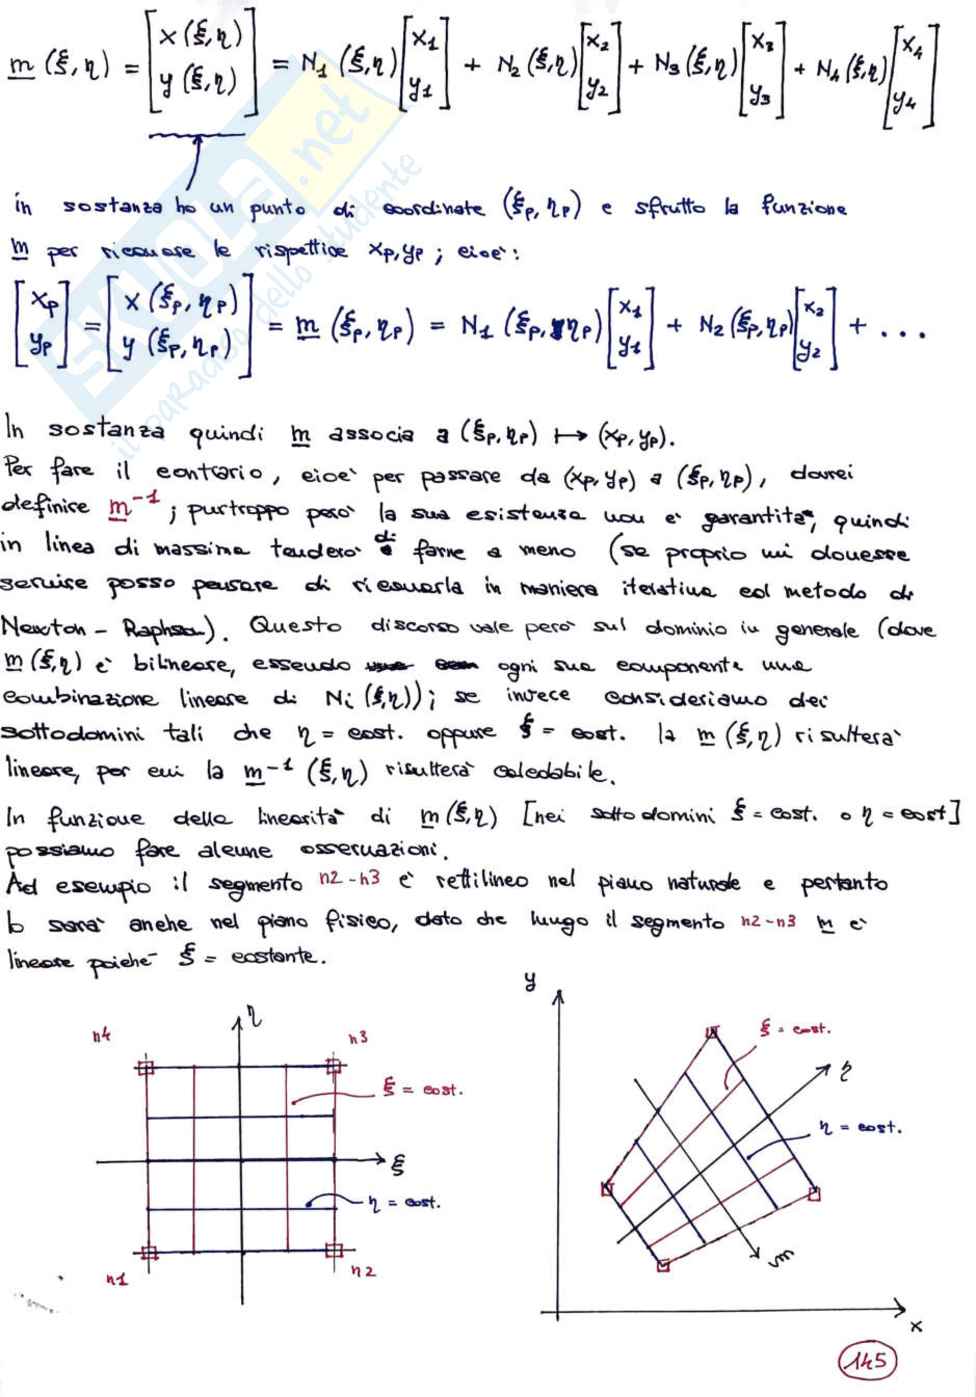 m (ξ, η) = [x (ξ, η) y (ξ, η)] = N1 (ξ, η) [x1 y1] + N2 (ξ, η) [x2 y2] + N3 (ξ, η) [x3 y3] + N4 (ξ, η) [x4 y4]
in sostanza ho un punto di coordinate (ξP, ηP) e sfrutto la funzione
m per ricavare le rispettive xP, yP ; cioè:
[xP yP] = [x (ξP, ηP) y (ξP, ηP)] = m (ξP, ηP) = N1 (ξP, ηP) [x1 y1] + N2 (ξP, ηP) [x2 y2] + ...
In sostanza quindi m associa a (ξP, ηP) ↦ (xP, yP).
Per fare il contrario, cioè per passare da (xP, yP) a (ξP, ηP), dovrei
definire m⁻¹ ; purtroppo però la sua esistenza non è garantita, quindi
in linea di massima tenderò di farne a meno (se proprio mi dovesse
servire posso pensare di ricavarla in maniera iterativa col metodo di
Newton - Raphson). Questo discorso vale però sul dominio in generale (dove
m (ξ, η) è bilineare, essendo ogni sua componente una
combinazione lineare di Ni (ξ, η)); se invece consideriamo dei
sottodomini tali che η = cost. oppure ξ = cost. la m (ξ, η) risulterà
lineare, per cui la m⁻¹ (ξ, η) risulterà calcolabile.
In funzione della linearità di m (ξ, η) [nei sottodomini ξ = cost. o η = cost]
possiamo fare alcune osservazioni.
Ad esempio il segmento n2-n3 è rettilineo nel piano naturale e pertanto
lo sarà anche nel piano fisico, dato che lungo il segmento n2-n3 m è
lineare poiché ξ = costante.
n4
η
n3
ξ = cost.
ξ
η = cost.
n1
n2
y
ξ = cost.
η
η = cost.
x
145
SKUOLA.net
il paradiso dello studente